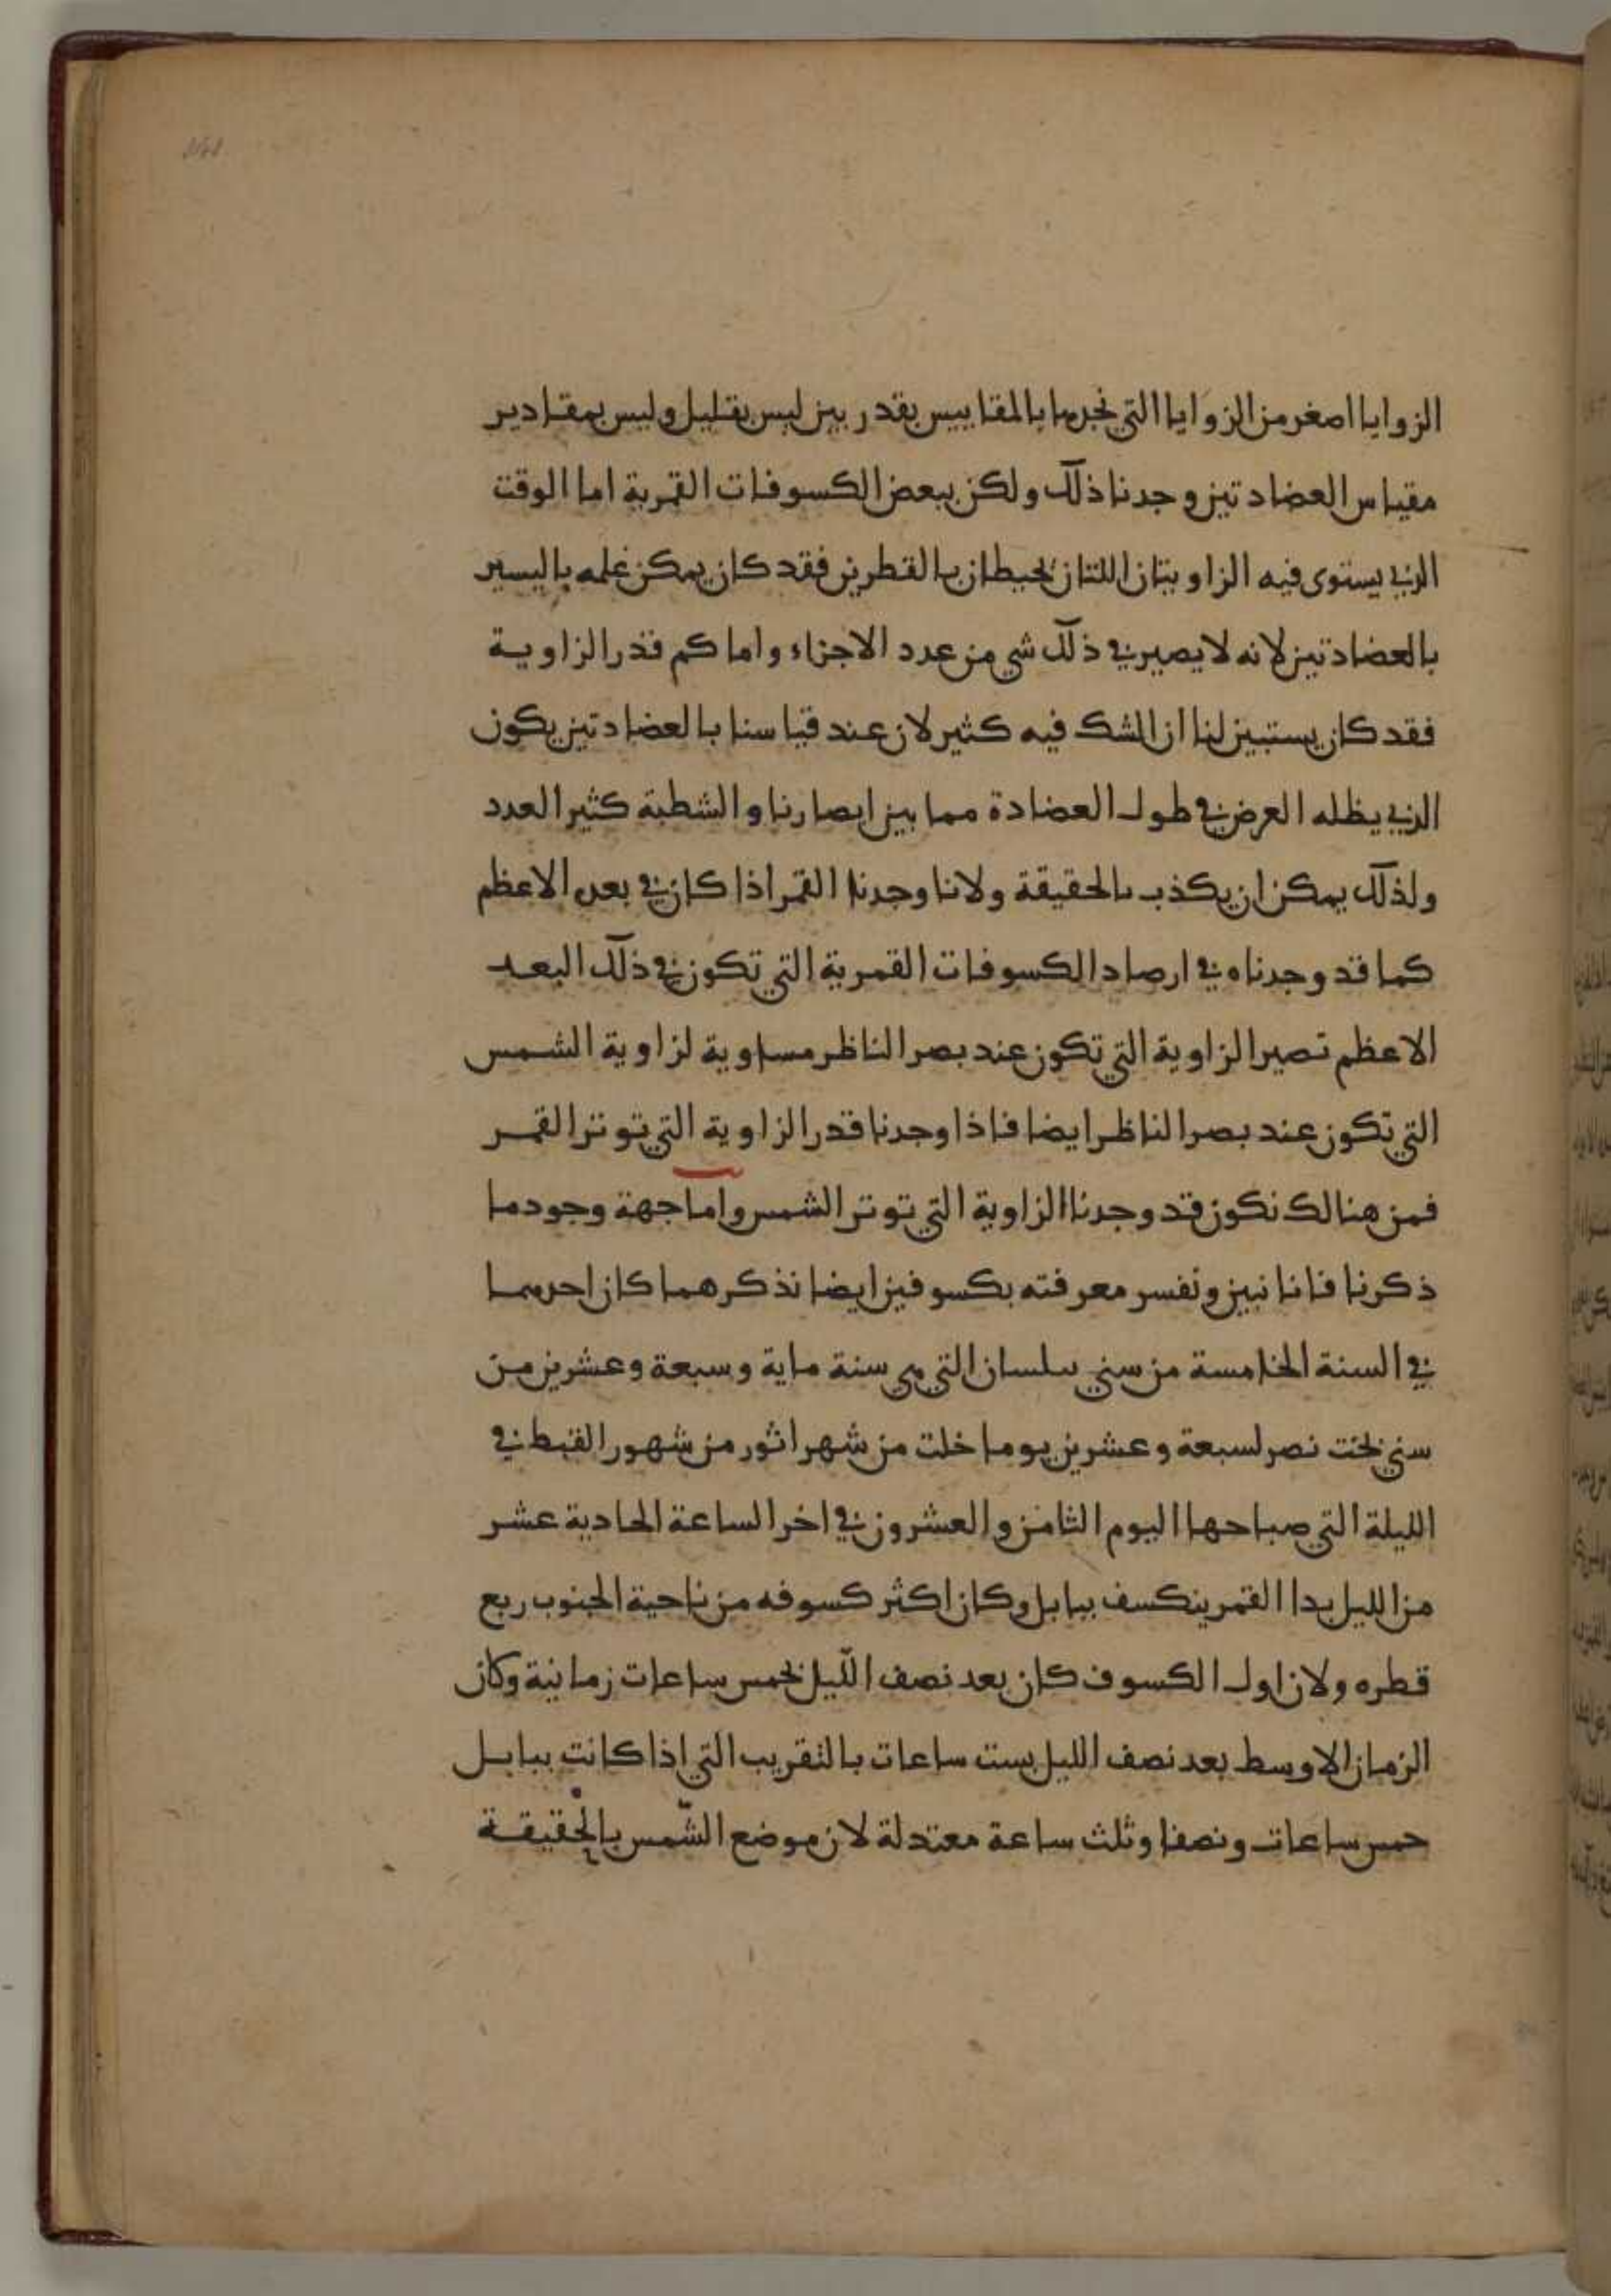 الزوايا اصغر من الزوايا التي نجدها بالمقاييس بقدر بين ليس بقليل وليس بمقادير
مقياس العضادتين وجدنا ذلك ولكن ببعض الكسوفات القمرية اما الوقت
الذي يستوى فيه الزاويتان اللتان تحيطان بالقطرين فقد كان يمكن علمه باليسير
بالعضادتين لانه لا يصير في ذلك شي من عدد الاجزاء واما كم قدر الزاوية
فقد كان يستبين لنا ان الشك فيه كثير لان عند قياسنا بالعضادتين يكون
الذي يظله العرض في طول العضادة مما بين ابصارنا والشطبة كثير العدد
ولذلك يمكن ان يكذب بالحقيقة ولانا وجدنا القمر اذا كان في بعده الاعظم
كما قد وجدناه في ارصاد الكسوفات القمرية التي تكون في ذلك البعد
الاعظم تصير الزاوية التي تكون عند بصر الناظر مساوية لزاوية الشمس
التي تكون عند بصر الناظر ايضا فاذا وجدنا قدر الزاوية التي توتر القمر
فمن هنالك نكون قد وجدنا الزاوية التي توتر الشمس واما جهة وجود ما
ذكرنا فانا نبين ونفسر معرفته بكسوفين ايضا نذكرهما كان احدهما
في السنة الخامسة من سني سلسان التي هي سنة ماية وسبعة وعشرين من
سني بخت نصر لسبعة وعشرين يوما خلت من شهر اثور من شهور القبط في
الليلة التي صباحها اليوم الثامن والعشرون في اخر الساعة الحادية عشر
من الليل بدا القمر ينكسف ببابل وكان اكثر كسوفه من ناحية الجنوب ربع
قطره ولان اول الكسوف كان بعد نصف الليل بخمس ساعات زمانية وكان
الزمان الاوسط بعد نصف الليل بست ساعات بالتقريب التي اذا كانت ببابل
خمس ساعات ونصفا وثلث ساعة معتدلة لان موضع الشمس بالحقيقة